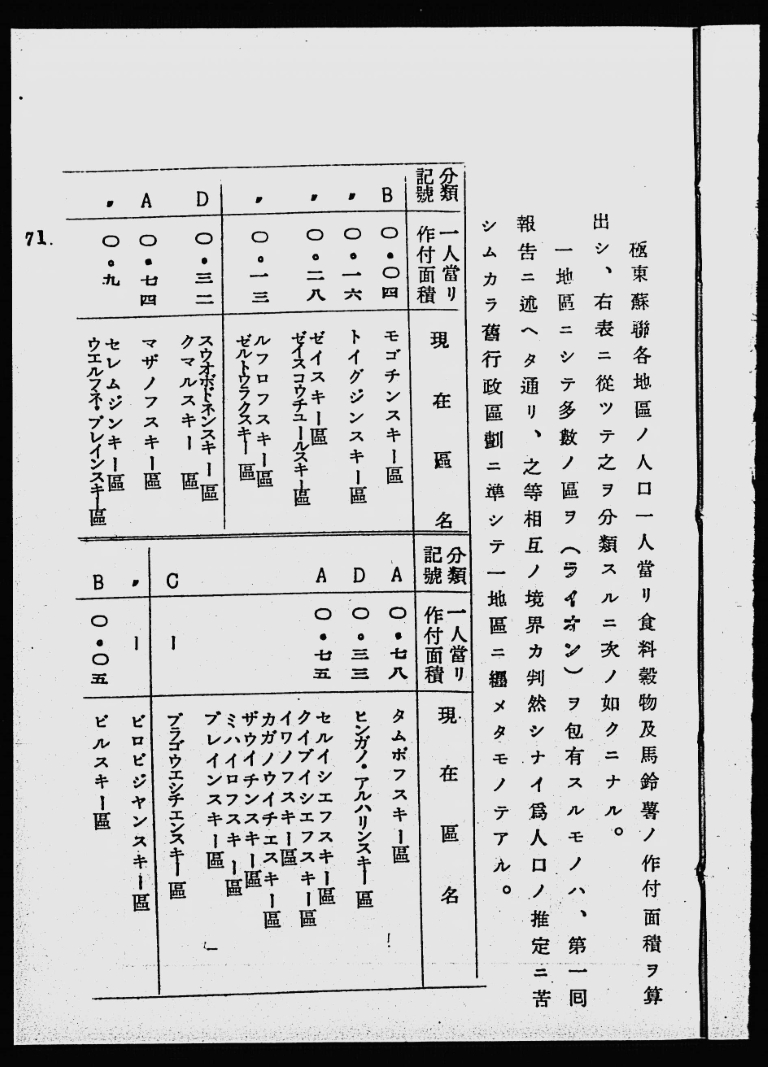 極東蘇聯各地區ノ人口一人當リ食料穀物及馬鈴薯ノ作付面積ヲ算
出シ、右表ニ從ツテ之ヲ分類スルニ次ノ如クニナル。
一地區ニシテ多數ノ區ヲ（ライオン）ヲ包有スルモノハ、第一囘
報告ニ述ヘタ通リ、之等相互ノ境界カ判然シナイ爲人口ノ推定ニ苦
シムカラ舊行政區劃ニ準シテ一地區ニ纒メタモノテアル。
分類記號 一人當リ作付面積 現在區名
B 〇・〇四 モゴチンスキー區
〃 〇。一六 トイグジンスキー區
〃 〇。二八 ゼイスキー區
ゼイスコウチユールスキー區
〃 〇。一三 ルフロフスキー區
ゼルトウラクスキー區
D 〇。三二 スウオボドネンスキー區
クマルスキー區
A 〇・七四 マザノフスキー區
〃 〇・九 セレムジンキー區
ウエルフネ・ブレインスキー區
分類記號 一人當リ作付面積 現在區名
A 〇・七八 タムボフスキー區
D 〇・三三 ヒンガノ・アルハリンスキー區
A 〇・七五 セルイシエフスキー區
クイブイシエフスキー區
イワノフスキー區
カガノウイチエスキー區
ザウイチンスキー區
ミハイロフスキー區
ブレインスキー區
C ー ブラゴウエシチエンスキー區
〃 ー ビロビジヤンスキー區
B 〇・〇五 ビルスキー區
71.